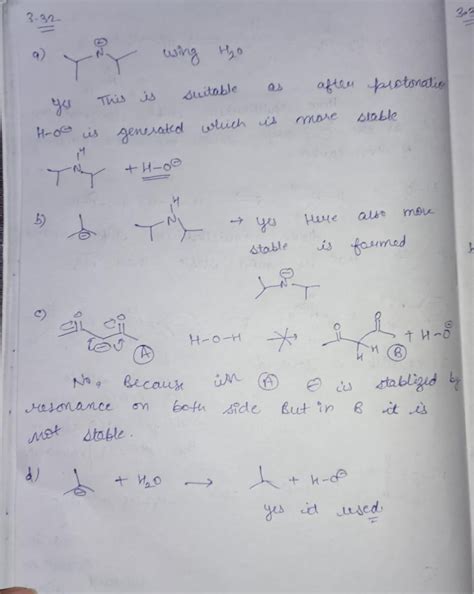 3.32
a) N⊖ using H2O
Yes This is suitable as after protonatio
H-O⊖ is generated which is more stable
H
N + H-O⊖
b) ⊖ H N → Yes Here also more
stable is formed
⊖ N
c) O O ⊖ A H-O-H O O H H B + H-O⊖
No, Because in A ⊖ is stablized by
resonance on both side But in B it is
not stable.
d) ⊖ + H2O → + H-O⊖
yes it used